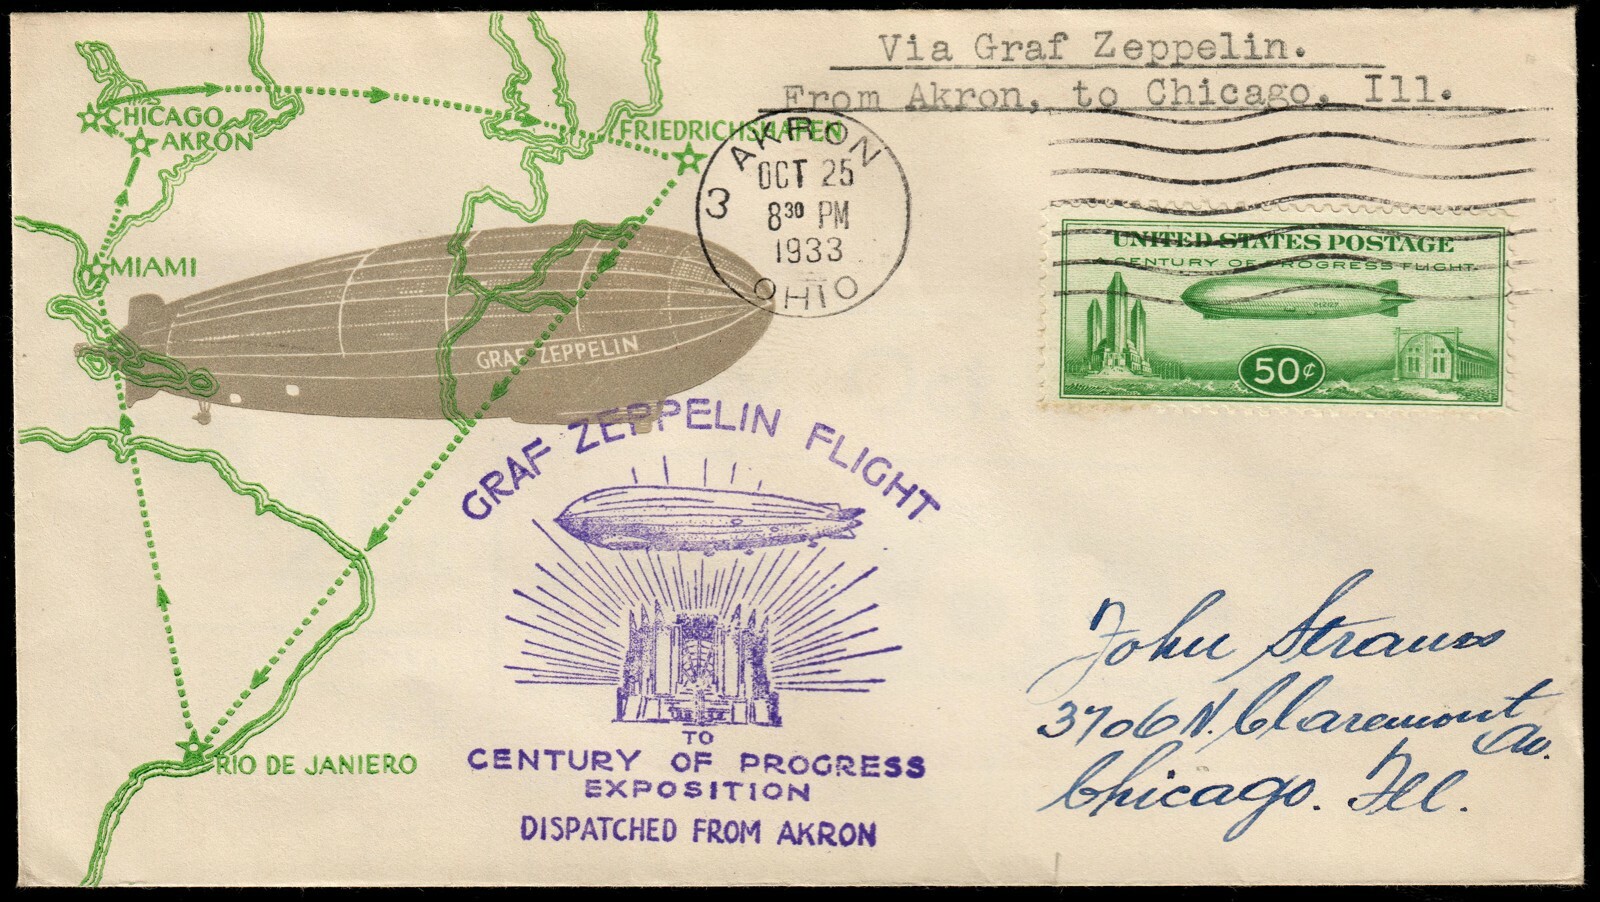 Via Graf Zeppelin.
From Akron, to Chicago, Ill.
CHICAGO
AKRON
FRIEDRICHSHAFEN
MIAMI
RIO DE JANIERO
GRAF ZEPPELIN
3
AKRON
OCT 25
8 30 PM
1933
OHIO
UNITED STATES POSTAGE
A CENTURY OF PROGRESS FLIGHT
50¢
GRAF ZEPPELIN FLIGHT
TO
CENTURY OF PROGRESS
EXPOSITION
DISPATCHED FROM AKRON
John Strauss
3706 N. Claremont
Av.
Chicago. Ill.